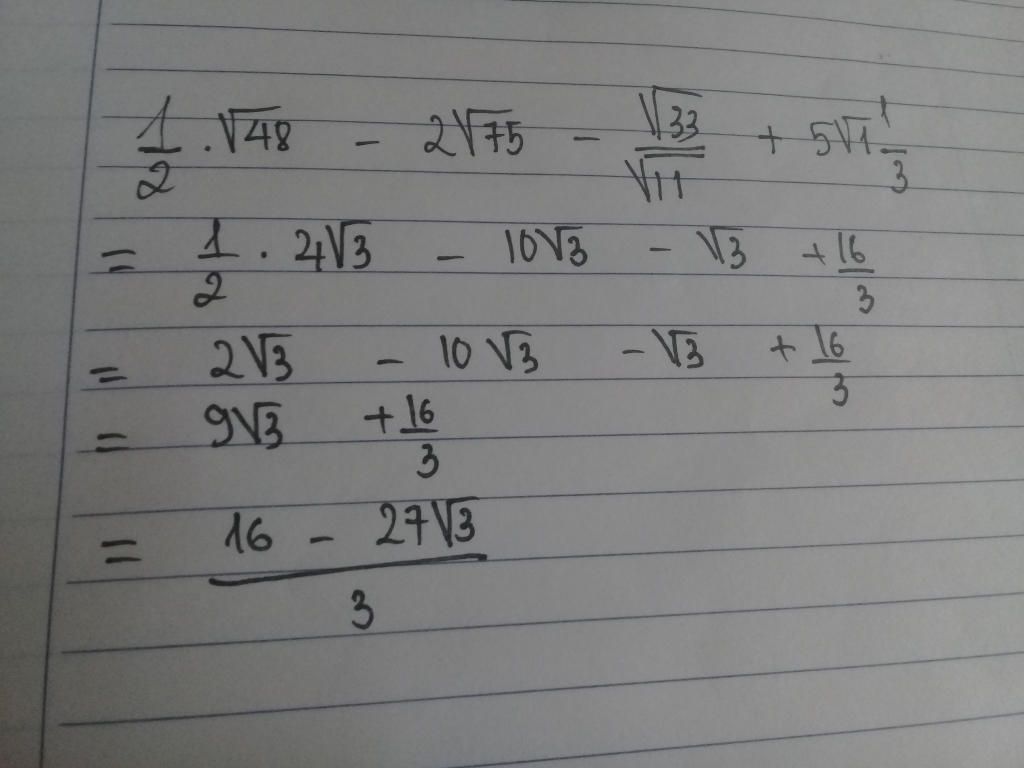 1/2 . √48 - 2√75 - √33/√11 + 5√1 1/3
= 1/2 . 4√3 - 10√3 - √3 + 16/3
= 2√3 - 10√3 - √3 + 16/3
= 9√3 + 16/3
= 16 - 27√3 / 3